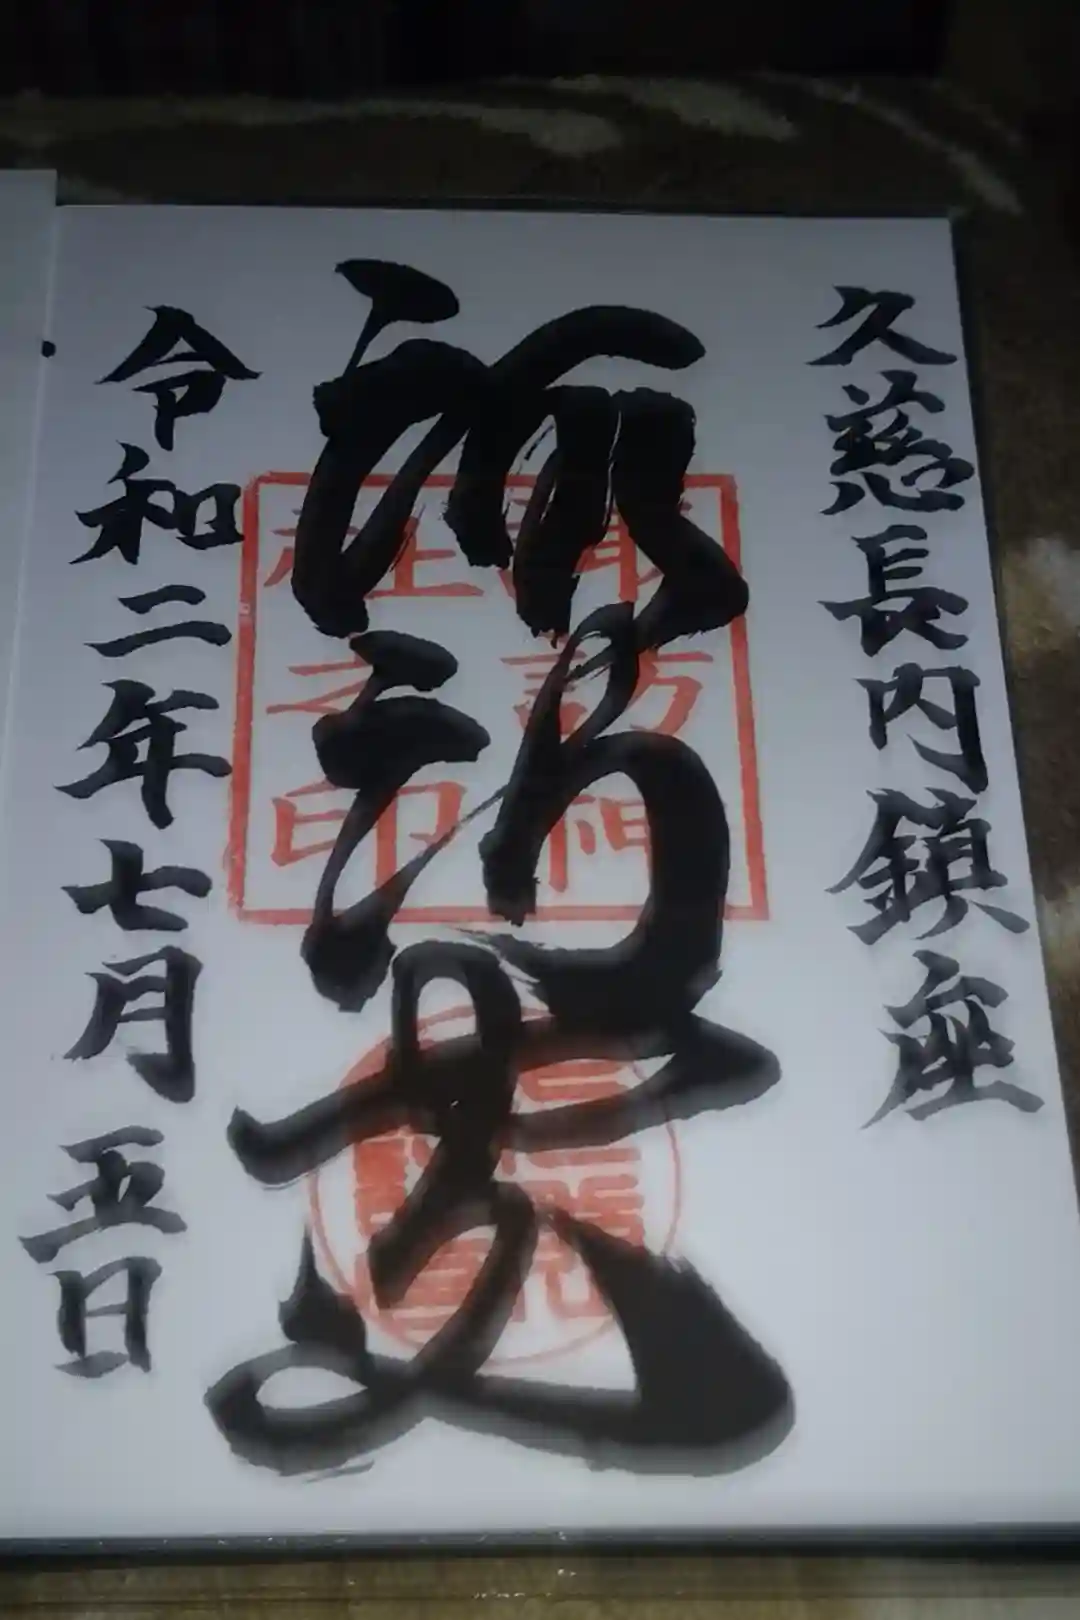 久慈長内鎮座
諏訪大
諏訪神
社之印
令和二年七月五日